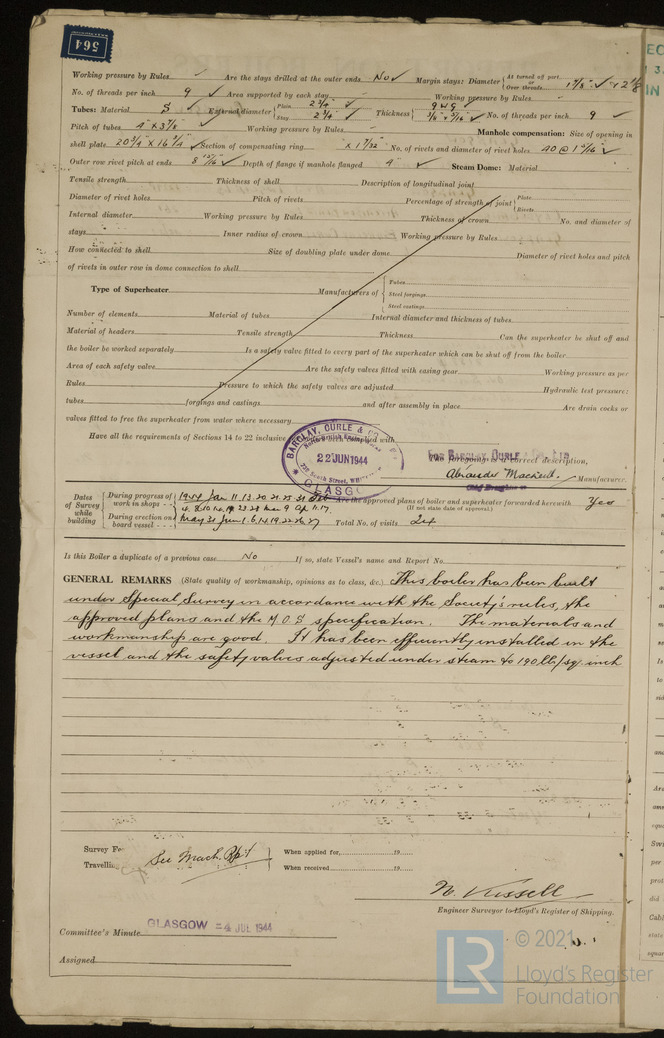 564
Working pressure by Rules Are the stays drilled at the outer ends No ✓ Margin stays: Diameter { At turned off part, or Over threads 1 7/8" ✓ & 2 1/8
No. of threads per inch 9 ✓ Area supported by each stay Working pressure by Rules
Tubes: Material S ✓ External diameter { Plain 2 3/4" ✓ Stay 2 3/4" ✓ Thickness { 9 WG ✓ 3/8 & 5/16 ✓ No. of threads per inch 9 ✓
Pitch of tubes 4" x 3 7/8 ✓ Working pressure by Rules Manhole compensation: Size of opening in
shell plate 20 3/4 x 16 3/4 ✓ Section of compensating ring x 1 7/32 No. of rivets and diameter of rivet holes 40 @ ✓
Outer row rivet pitch at ends ✓ Depth of flange if manhole flanged 4" ✓ Steam Dome: Material
Tensile strength Thickness of shell Description of longitudinal joint
Diameter of rivet holes Pitch of rivets Percentage of strength of joint { Plate Rivets
Internal diameter Working pressure by Rules Thickness of crown No. and diameter of
stays Inner radius of crown Working pressure by Rules
How connected to shell Size of doubling plate under dome Diameter of rivet holes and pitch
of rivets in outer row in dome connection to shell
Type of Superheater Manufacturers of { Tubes Steel forgings Steel castings
Number of elements Material of tubes Internal diameter and thickness of tubes
Material of headers Tensile strength Thickness Can the superheater be shut off and
the boiler be worked separately Is a safety valve fitted to every part of the superheater which can be shut off from the boiler
Area of each safety valve Are the safety valves fitted with easing gear Working pressure as per
Rules Pressure to which the safety valves are adjusted Hydraulic test pressure:
tubes forgings and castings and after assembly in place Are drain cocks or
valves fitted to free the superheater from water where necessary
Have all the requirements of Sections 14 to 22 inclusive been complied with
BARCLAY, CURLE & CO
22 JUN 1944
GLASGOW
FOR BARCLAY, CURLE & Co., Ltd
The foregoing is a correct description,
Manufacturer.
Dates of Survey while building { During progress of work in shops 1944 Jan 11.13.20.21.25.31 Are the approved plans of boiler and superheater forwarded herewith Yes
(If not state date of approval.)
During erection on board vessel May 31 June Total No. of visits
Is this Boiler a duplicate of a previous case No If so, state Vessel's name and Report No.
GENERAL REMARKS (State quality of workmanship, opinions as to class, &c.) This boiler has been built
under Special Survey in accordance with the Society's rules, the
approved plans and the M.O.S specification. The materials and
workmanship are good. It has been efficiently installed in the
vessel and the safety valves adjusted under steam to 190 lb/sq. inch
Survey Fe
Travellin
See Mach. Rpt
When applied for, 19
When received 19
N. Russell
Engineer Surveyor to Lloyd's Register of Shipping.
Committee's Minute GLASGOW 4 JUL 1944
Assigned
LR © 2021
Lloyd's Register
Foundation